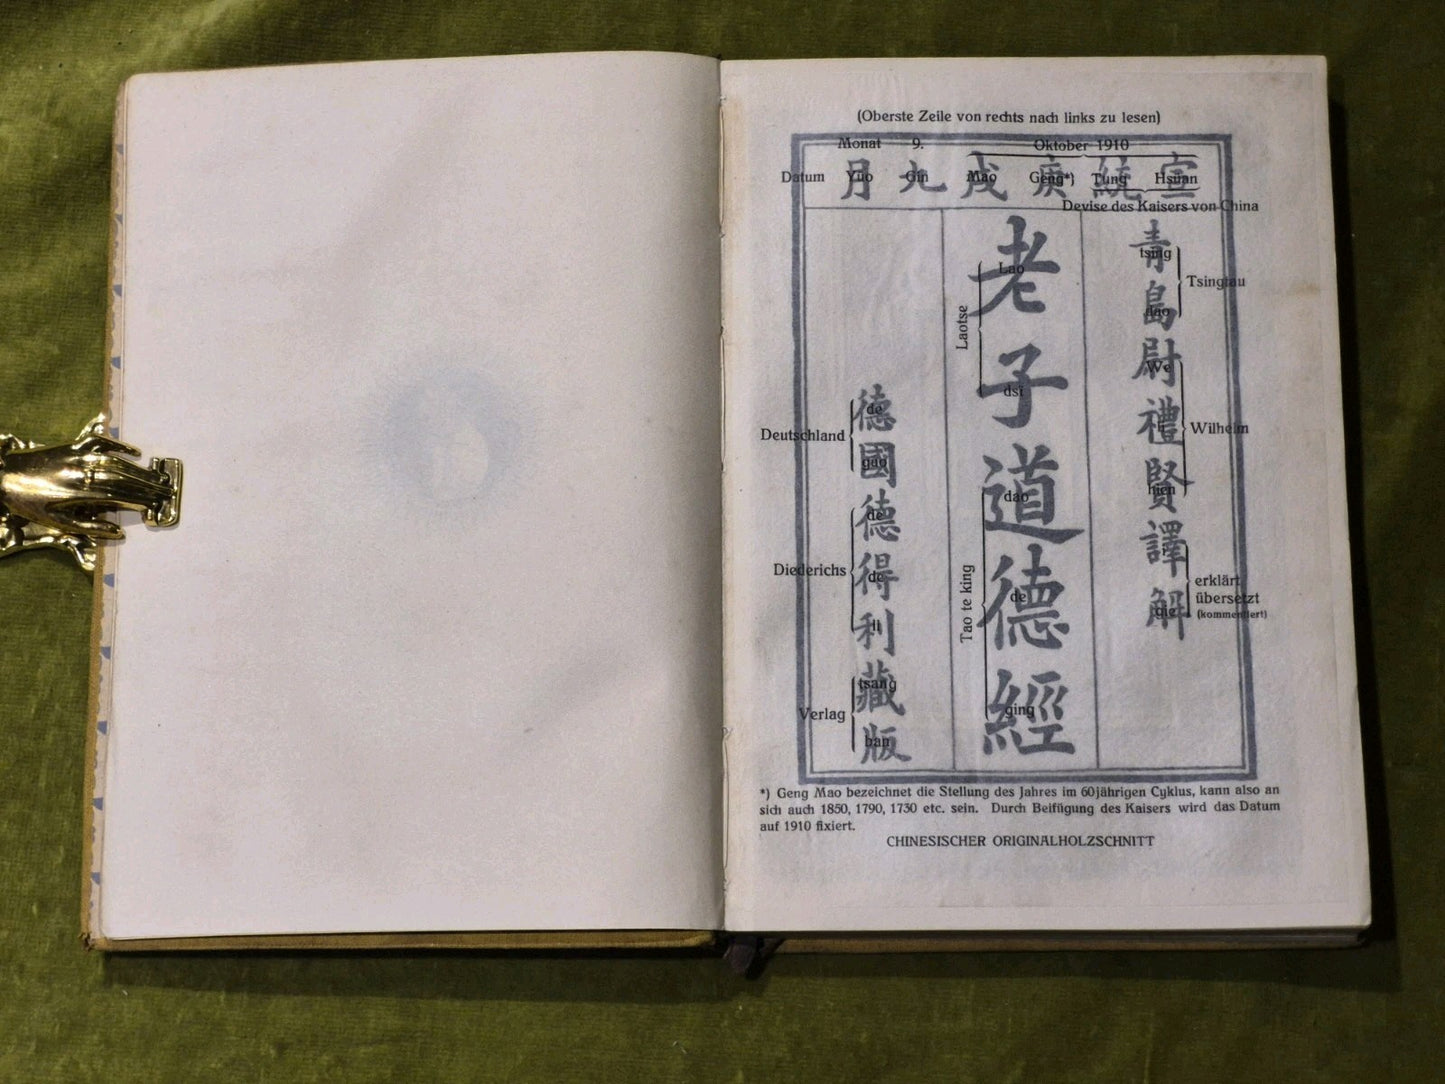 (Oberste Zeile von rechts nach links zu lesen)
Monat 9. Oktober 1910
月九戌庚統宣
Datum Yüo Giu Mao Geng*) Tung Hsüan
Devise des Kaisers von China
青島尉禮賢譯解
tsing
dao
Tsingtau
We
li
hien
Wilhelm
i
gie
erklärt
übersetzt
(kommentiert)
老子道德經
Lao
dsï
Laotse
dao
de
ging
Tao te king
德國德得利藏版
de
gao
Deutschland
de
de
li
Diederichs
tsang
ban
Verlag
*) Geng Mao bezeichnet die Stellung des Jahres im 60jährigen Cyklus, kann also an
sich auch 1850, 1790, 1730 etc. sein. Durch Beifügung des Kaisers wird das Datum
auf 1910 fixiert.
CHINESISCHER ORIGINALHOLZSCHNITT